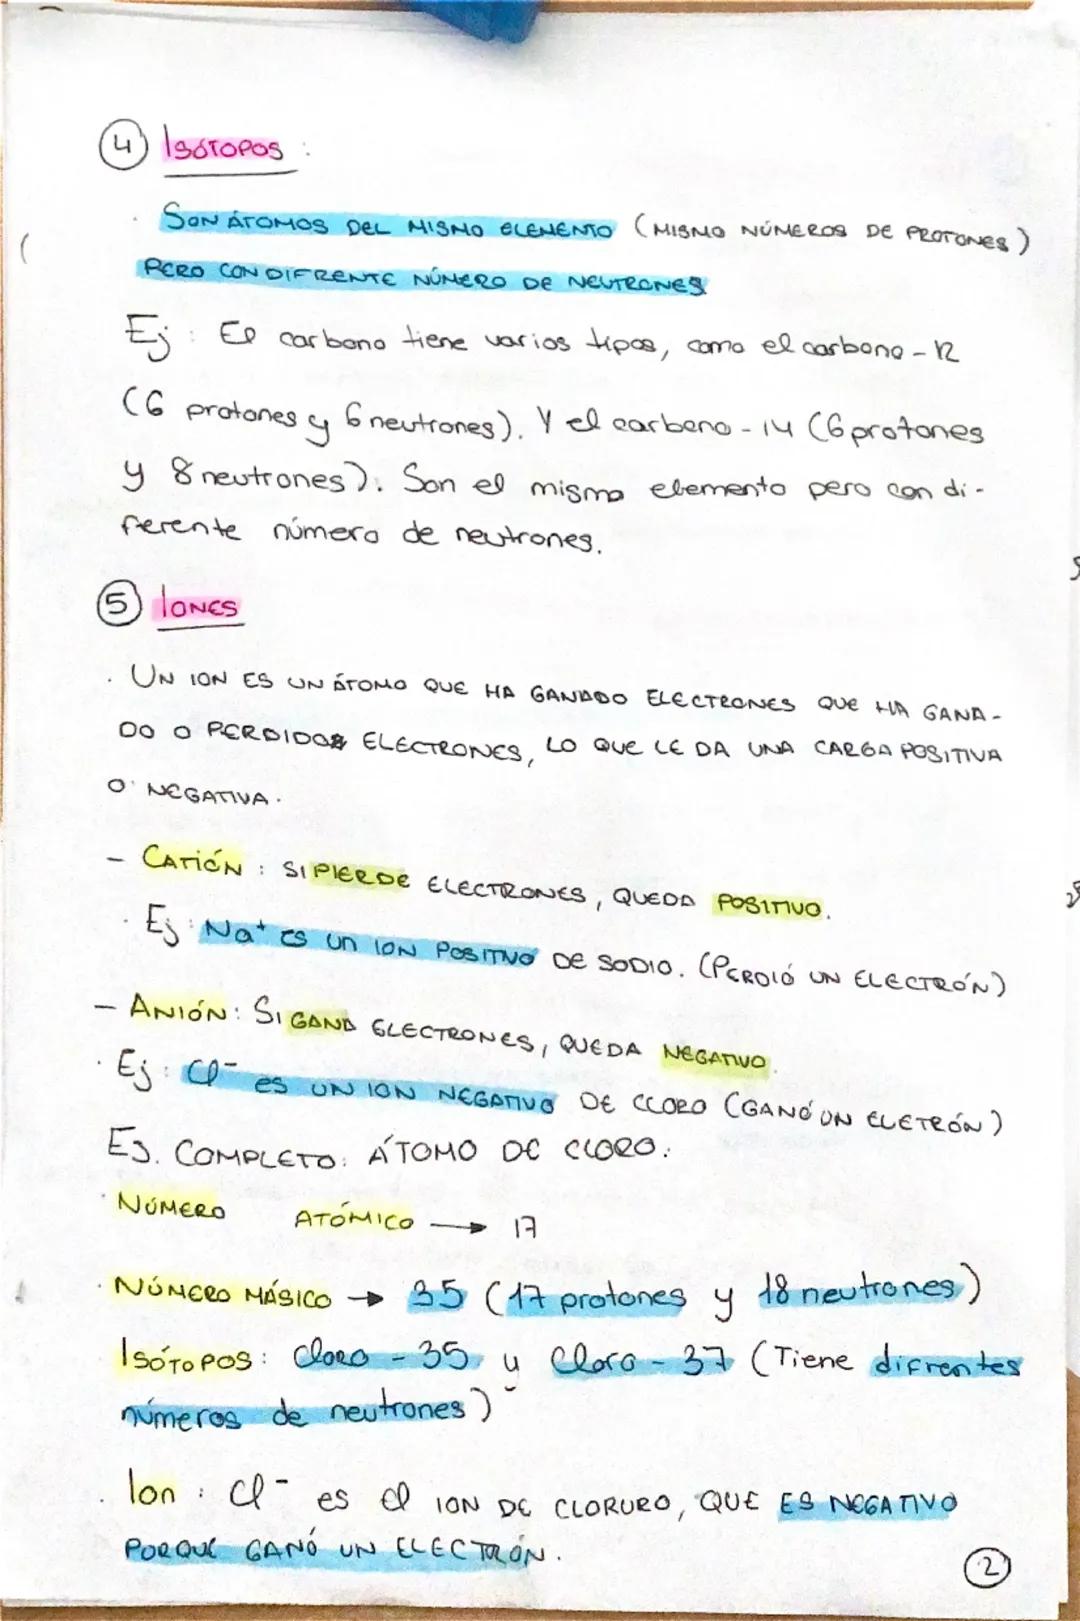 4 ISÓTOPOS :
· SON ÁTOMOS DEL MISMO ELEMENTO (MISMO NÚMEROS DE PROTONES)
PERO CON DIFRENTE NÚMERO DE NEUTRONES
Ej : El carbono tiene varios tipos, como el carbono - 12
(6 protones y 6 neutrones). Y el carbono - 14 (6 protones
y 8 neutrones). Son el mismo elemento pero con di-
ferente número de neutrones.
5 IONES
· UN ION ES UN ÁTOMO QUE HA GANADO ELECTRONES QUE HA GANA-
DO O PERDIDO ELECTRONES, LO QUE LE DA UNA CARGA POSITIVA
O NEGATIVA.
- CATIÓN : SI PIERDE ELECTRONES, QUEDA POSITIVO.
· Ej : Na⁺ ES UN ION POSITIVO DE SODIO. (PERDIÓ UN ELECTRÓN)
- ANIÓN: SI GANA ELECTRONES, QUEDA NEGATIVO.
· Ej : Cl⁻ es UN ION NEGATIVO DE CLORO (GANÓ UN ELETRÓN)
EJ. COMPLETO: ÁTOMO DE CLORO:
· NÚMERO ATÓMICO → 17
· NÚMERO MÁSICO → 35 (17 protones y 18 neutrones)
ISÓTOPOS: Cloro - 35 y Cloro - 37 (Tiene difrentes
números de neutrones)
· Ion : Cl⁻ es el ION DE CLORURO, QUE ES NEGATIVO
PORQUE GANÓ UN ELECTRÓN.
2